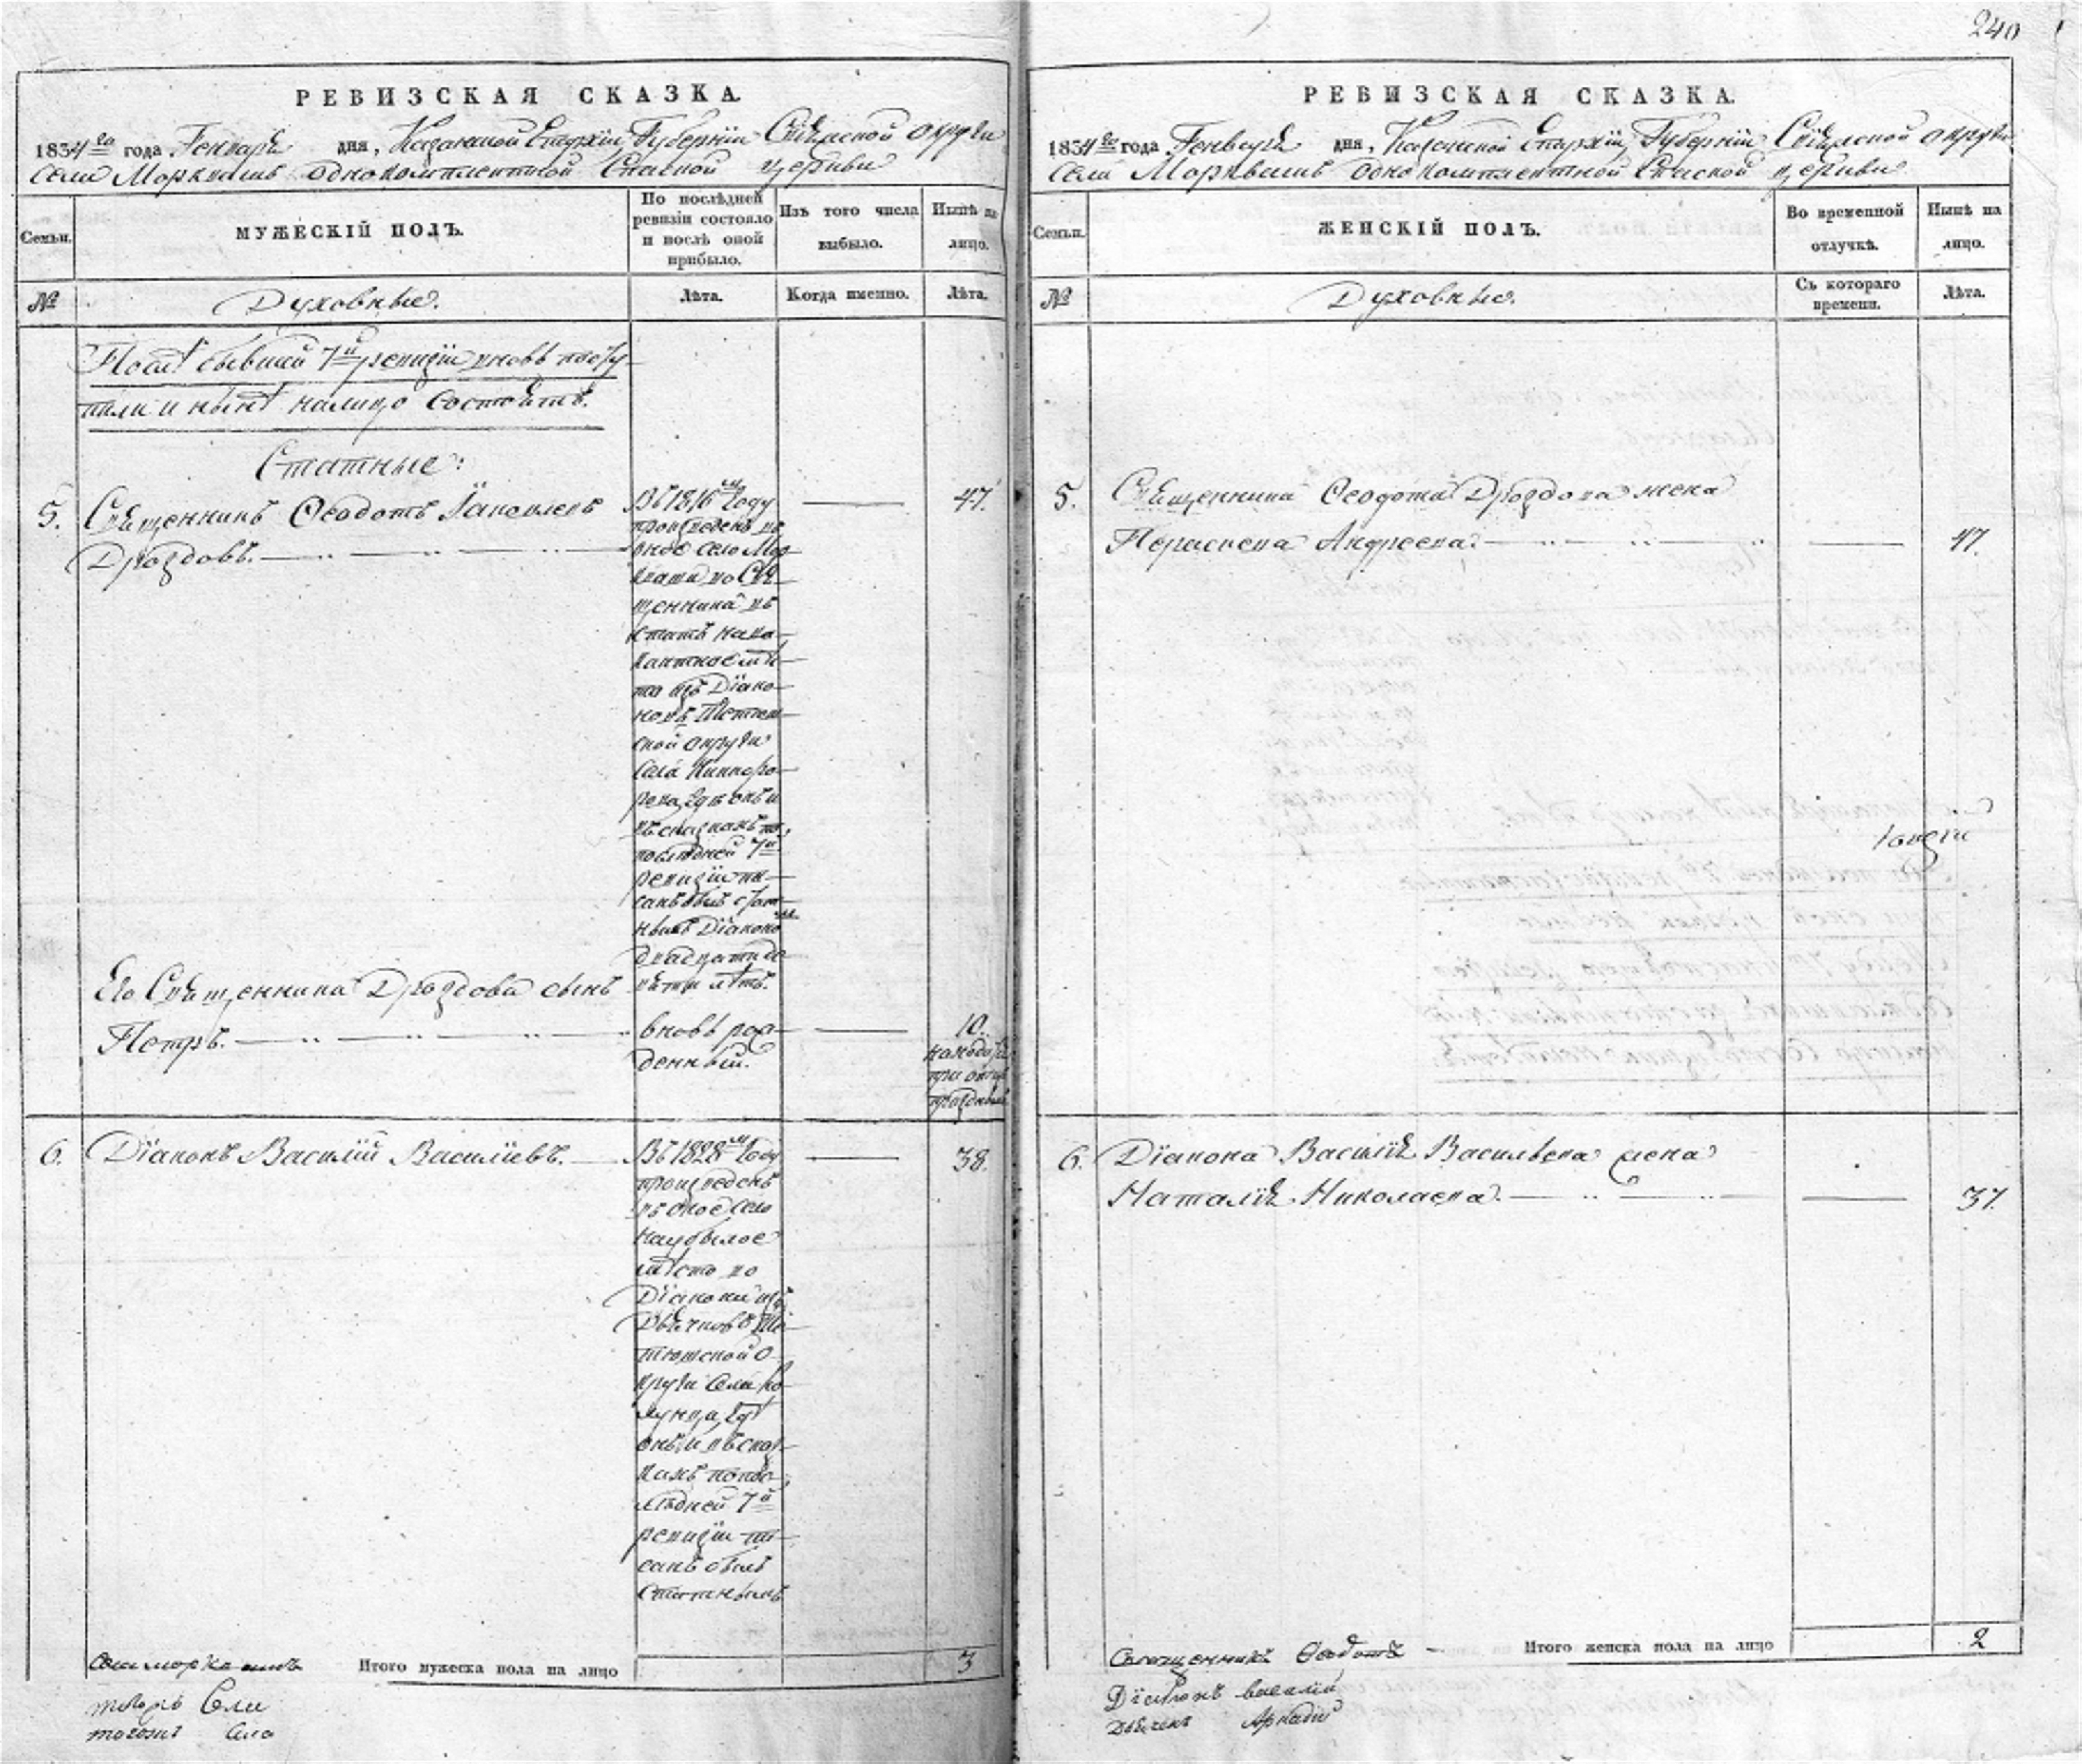 240
РЕВИЗСКАЯ СКАЗКА.
1834го года Генваря дня, Казанской Епархіи, Губерніи Свіяжской округи
села Моркваш однокомплектной Спасской церкви
Семьи.
МУЖЕСКІЙ ПОЛЪ.
По послѣдней
ревизіи состояло
и послѣ оной
прибыло.
Изъ того числа
выбыло.
Нынѣ на
лицо.
№
Духовные.
Лѣта.
Когда именно.
Лѣта.
Послѣ бывшей 7й ревизіи вновь посту
пили и нынѣ налицо состоятъ.
Статные:
5. Священникъ Ѳеодотъ Яковлевъ
Дроздовъ.
Въ 1816м году
произведенъ въ
оное село Мор
кваши во Свя
щенника въ
штатъ на ва
кантное мѣс
то изъ Діако
новъ
ской округи
села
рова, гдѣ онъ и
въ сказкахъ по
послѣдней 7й
ревизіи пи
санъ былъ стат
нымъ Діакономъ
двадцати де
вяти лѣтъ.
47.
Его Священника Дроздова сынъ
Петръ.
вновь рож
денный.
10.
6. Діаконъ Василій Васильевъ.
Въ 1828м году
произведенъ
въ оное село
на убылое
мѣсто во
Діакона изъ
Дьячковъ Те
тюшской о
круги села
гдѣ
онъ и въ сказ
кахъ по пос
лѣдней 7й
ревизіи пи
санъ былъ
Статнымъ
38.
Итого мужеска пола на лицо
3
села
тогожъ села
РЕВИЗСКАЯ СКАЗКА.
1834го года Генваря дня, Казанской Епархіи, Губерніи Свіяжской округи
села Морквашъ однокомплектной Спасской церкви
Семьи.
ЖЕНСКІЙ ПОЛЪ.
Во временной
отлучкѣ.
Нынѣ на
лицо.
№
Духовные.
Съ котораго
времени.
Лѣта.
5. Священника Ѳеодота Дроздова жена
Параскева Андреева.
47.
6. Діакона Василія Васильева жена
Наталія Николаева.
37.
Итого женска пола на лицо
2
Священникъ Ѳеодотъ
Діаконъ Василій
Дьячекъ Аркадій